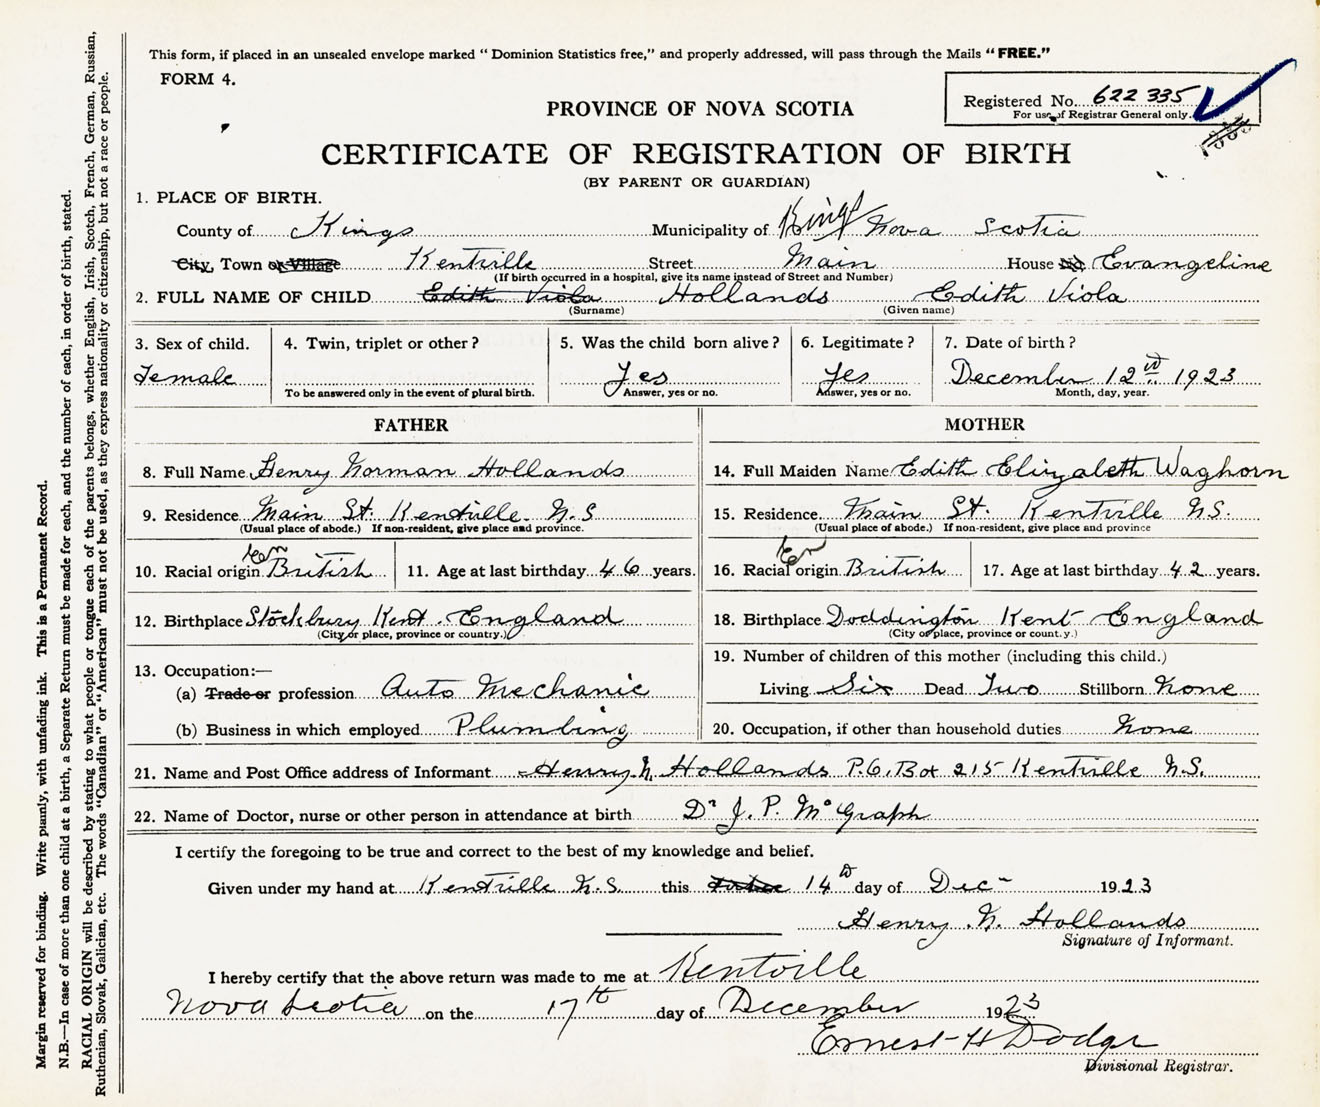 This form, if placed in an unsealed envelope marked “ Dominion Statistics free,” and properly addressed, will pass through the Mails “ FREE.”
FORM 4.
Registered No. 622 335
For use of Registrar General only.
PROVINCE OF NOVA SCOTIA
CERTIFICATE OF REGISTRATION OF BIRTH
(BY PARENT OR GUARDIAN)
1. PLACE OF BIRTH.
County of Kings Municipality of Kings Nova Scotia
City, Town or Village Kentville Street Main House No. Evangeline
(If birth occurred in a hospital, give its name instead of Street and Number)
2. FULL NAME OF CHILD Edith Viola Hollands Edith Viola
(Surname) (Given name)
3. Sex of child. 4. Twin, triplet or other? 5. Was the child born alive? 6. Legitimate? 7. Date of birth?
Female Yes Yes December 12th 1923
To be answered only in the event of plural birth. Answer, yes or no. Answer, yes or no. Month, day, year.
FATHER
8. Full Name Henry Norman Hollands
9. Residence Main St. Kentville. N.S
(Usual place of abode.) If non-resident, give place and province.
10. Racial origin British 11. Age at last birthday 46 years.
12. Birthplace Stockbury Kent. England
(City or place, province or country.)
13. Occupation:—
(a) Trade or profession Auto Mechanic
(b) Business in which employed Plumbing
MOTHER
14. Full Maiden Name Edith Elizabeth Waghorn
15. Residence. Main St. Kentville N.S.
(Usual place of abode.) If non-resident, give place and province
16. Racial origin British 17. Age at last birthday 42 years.
18. Birthplace Doddington Kent England
(City or place, province or count.y.)
19. Number of children of this mother (including this child.)
Living Six Dead Two Stillborn None
20. Occupation, if other than household duties None
21. Name and Post Office address of Informant Henry. N. Hollands P.O. Box 215 Kentville N.S.
22. Name of Doctor, nurse or other person in attendance at birth Dr J. P. McGrath
I certify the foregoing to be true and correct to the best of my knowledge and belief.
Given under my hand at Kentville N.S. this 14th day of Dec 1923
Henry. N. Hollands
Signature of Informant.
I hereby certify that the above return was made to me at Kentville
Nova Scotia on the 17th day of December 1923
Ernest H Dodge
Divisional Registrar.
Margin reserved for binding. Write plainly, with unfading ink. This is a Permanent Record.
N.B.—In case of more than one child at a birth, a Separate Return must be made for each, and the number of each, in order of birth, stated.
RACIAL ORIGIN will be described by stating to what people or tongue each of the parents belongs, whether English, Irish, Scotch, French, German, Russian,
Ruthenian, Slovak, Galician, etc. The words “Canadian” or “American” must not be used, as they express nationality or citizenship, but not a race or people.